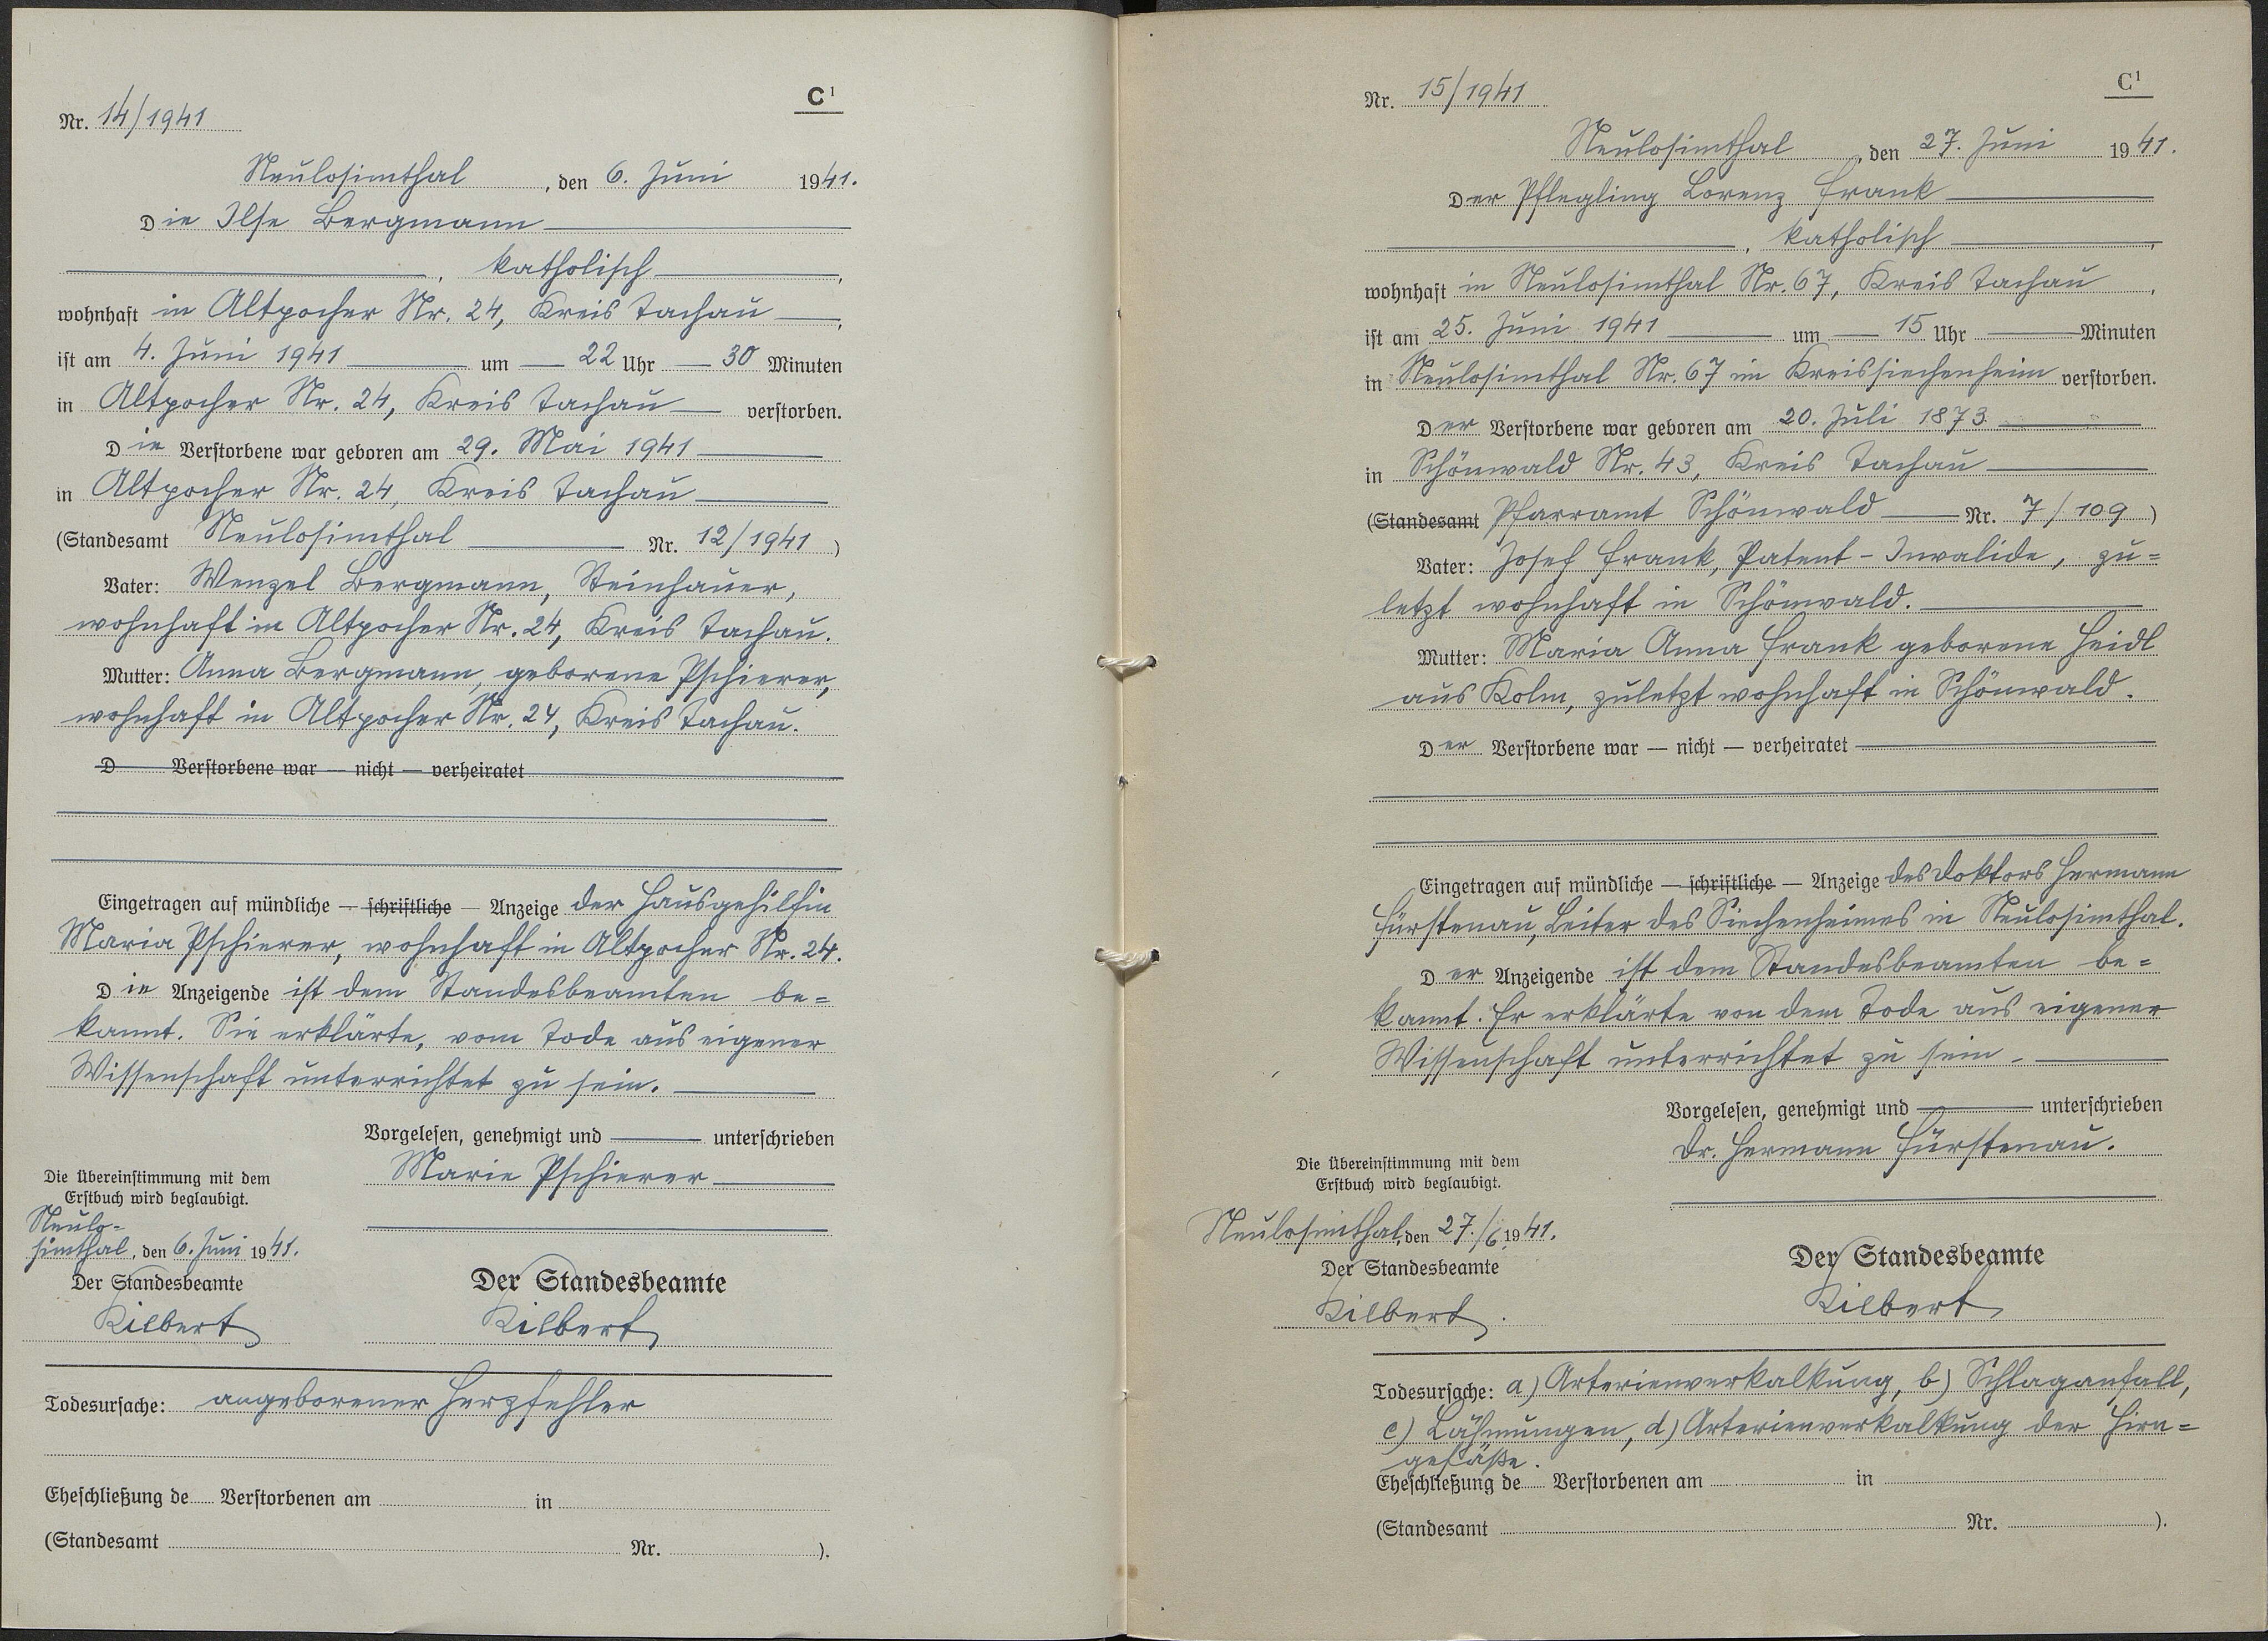 C¹
Nr. 14/1941
Neulosimthal, den 6. Juni 1941.
Die Ilse Bergmann
, katholisch,
wohnhaft in Altpocher Nr. 24, Kreis Tachau,
ist am 4. Juni 1941 um 22 Uhr 30 Minuten
in Altpocher Nr. 24, Kreis Tachau verstorben.
Die Verstorbene war geboren am 29. Mai 1941
in Altpocher Nr. 24, Kreis Tachau
(Standesamt Neulosimthal Nr. 12/1941)
Vater: Wenzel Bergmann, Steinhauer,
wohnhaft in Altpocher Nr. 24, Kreis Tachau.
Mutter: Anna Bergmann, geborene Pschierer,
wohnhaft in Altpocher Nr. 24, Kreis Tachau.
D Verstorbene war — nicht — verheiratet
Eingetragen auf mündliche — schriftliche — Anzeige der Hausgehilfin
Maria Pschierer, wohnhaft in Altpocher Nr. 24.
Die Anzeigende ist dem Standesbeamten be=
kannt. Sie erklärte, vom Tode aus eigener
Wissenschaft unterrichtet zu sein.
Vorgelesen, genehmigt und unterschrieben
Marie Pschierer
Die Übereinstimmung mit dem
Erstbuch wird beglaubigt.
Neulo-
simthal, den 6. Juni 1941.
Der Standesbeamte
Kilbert
Der Standesbeamte
Kilbert
Todesursache: angeborener Herzfehler
Eheschließung de Verstorbenen am in
(Standesamt Nr. ).
C¹
Nr. 15/1941
Neulosimthal, den 27. Juni 1941.
Der Pflegling Lorenz Frank
, katholisch,
wohnhaft in Neulosimthal Nr. 67, Kreis Tachau,
ist am 25. Juni 1941 um 15 Uhr Minuten
in Neulosimthal Nr. 67 im Kreissiechenheim verstorben.
Der Verstorbene war geboren am 20. Juli 1873
in Schönwald Nr. 43, Kreis Tachau
(Standesamt Pfarramt Schönwald Nr. 7/109)
Vater: Josef Frank, Patent-Invalide, zu=
letzt wohnhaft in Schönwald.
Mutter: Maria Anna Frank geborene Heidl
aus Kolm, zuletzt wohnhaft in Schönwald.
Der Verstorbene war — nicht — verheiratet
Eingetragen auf mündliche — schriftliche — Anzeige des Doktors Hermann
Fürstenau, Leiter des Siechenheimes in Neulosimthal.
Der Anzeigende ist dem Standesbeamten be=
kannt. Er erklärte von dem Tode aus eigener
Wissenschaft unterrichtet zu sein.
Vorgelesen, genehmigt und unterschrieben
Dr. Hermann Fürstenau.
Die Übereinstimmung mit dem
Erstbuch wird beglaubigt.
Neulosimthal, den 27./6. 1941.
Der Standesbeamte
Kilbert.
Der Standesbeamte
Kilbert
Todesursache: a) Arterienverkalkung, b) Schlaganfall,
c) Lähmungen, d) Arterienverkalkung der Hirn=
gefäße.
Eheschließung de Verstorbenen am in
(Standesamt Nr. ).